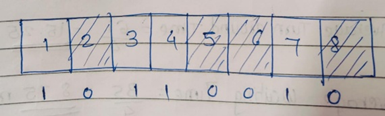 1 2 3 4 5 6 7 8
1 0 1 1 0 0 1 0